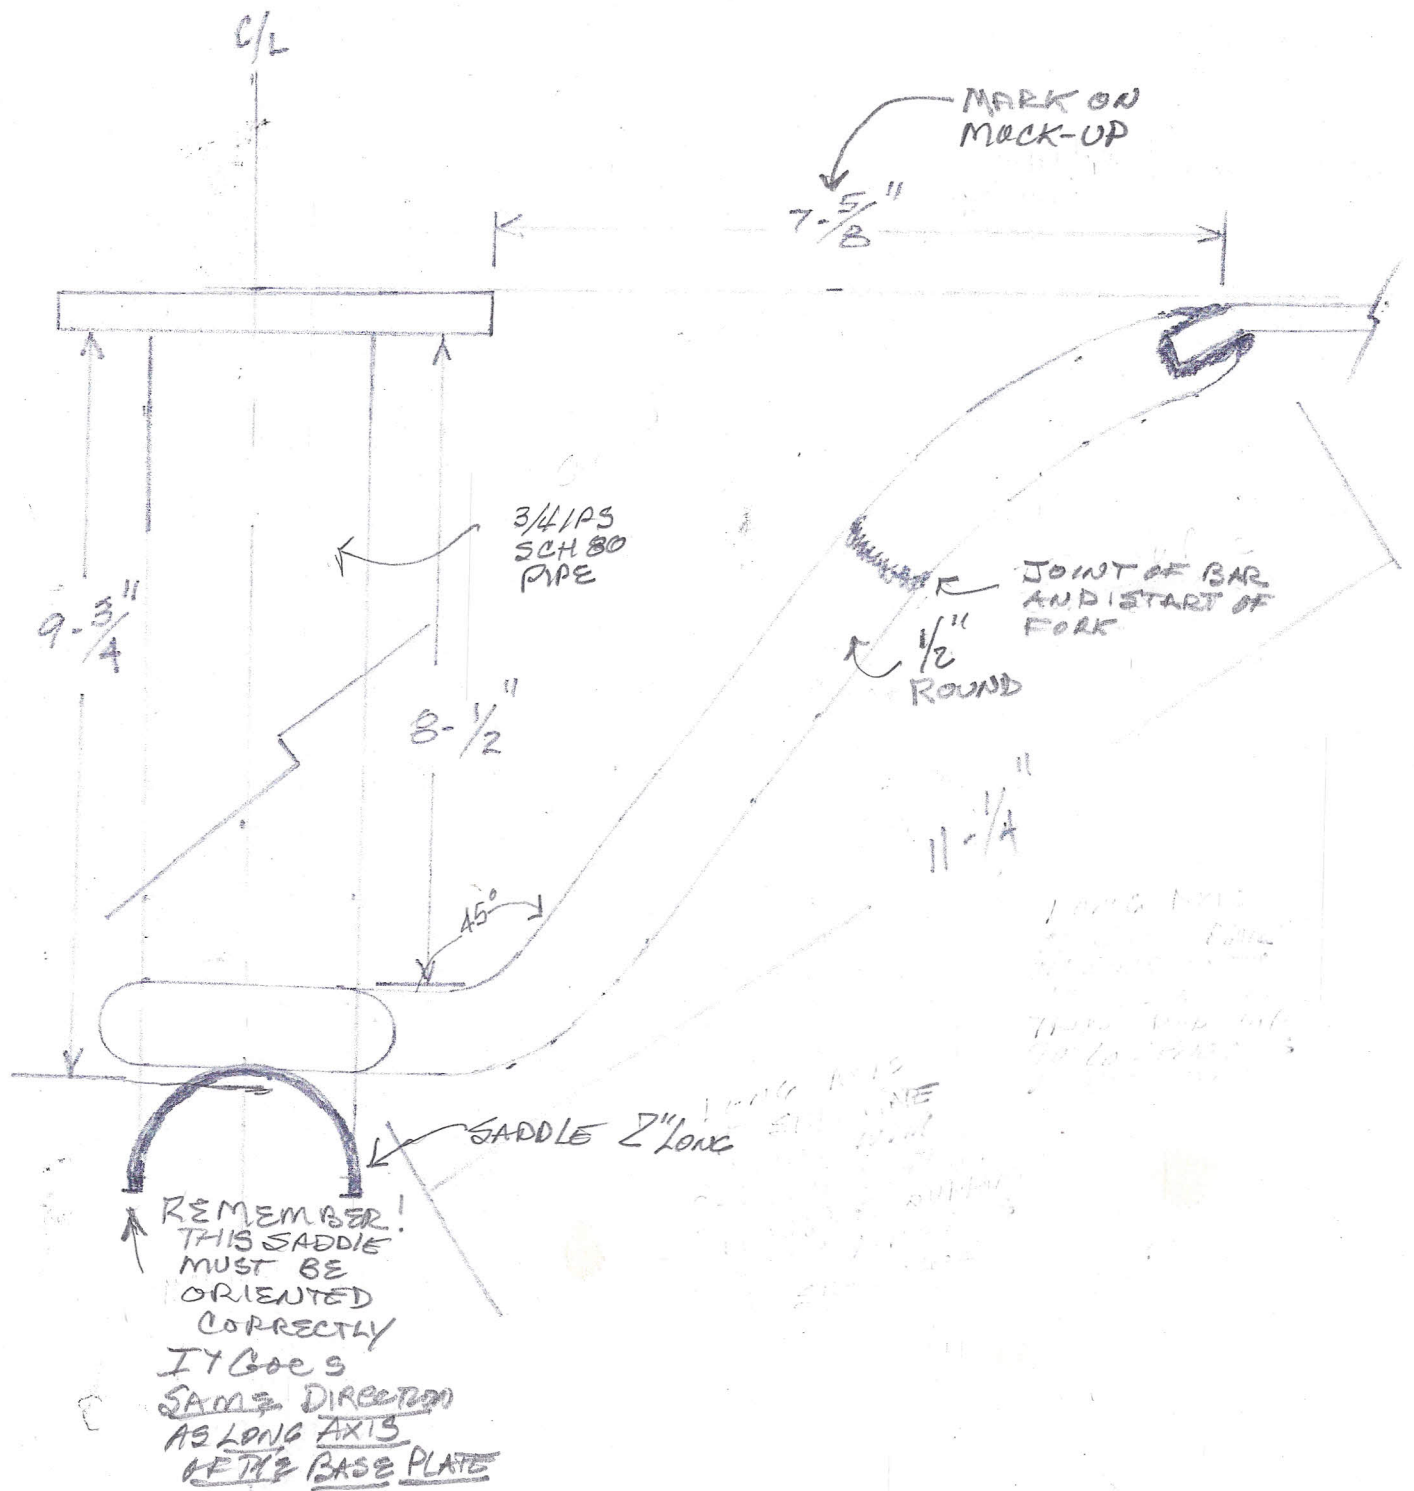 C/L
MARK ON
MOCK-UP
7-5/8"
3/4 IPS
SCH 80
PIPE
9-3/4"
JOINT OF BAR
AND START OF
FORK
1/2"
ROUND
8-1/2"
11-1/4"
45°
SADDLE 2" LONG
REMEMBER!
THIS SADDLE
MUST BE
ORIENTED
CORRECTLY
IT GOES
SAME DIRECTION
AS LONG AXIS
OF THE BASE PLATE